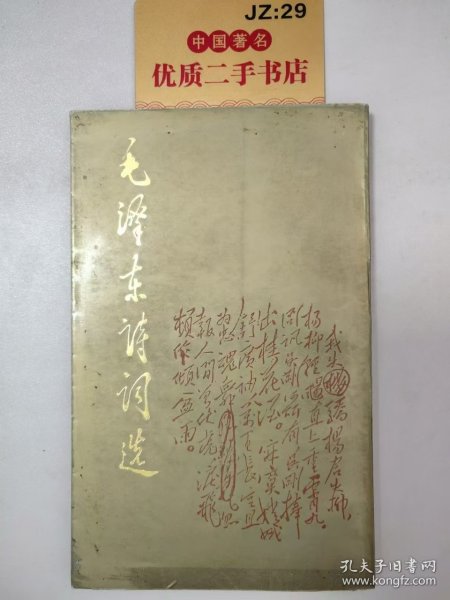 JZ:29
中国著名
优质二手书店
毛泽东诗词选
我失楊君失柳
楊柳輕颺直上重霄九
问讯吴刚何所有吴刚捧
出桂花酒。寂寞嫦娥
舒广袖萬里長空且
忠魂舞
報人间曾伏虎淚飛
頓作傾盆雨。
孔夫子旧书网
www.kongfz.com